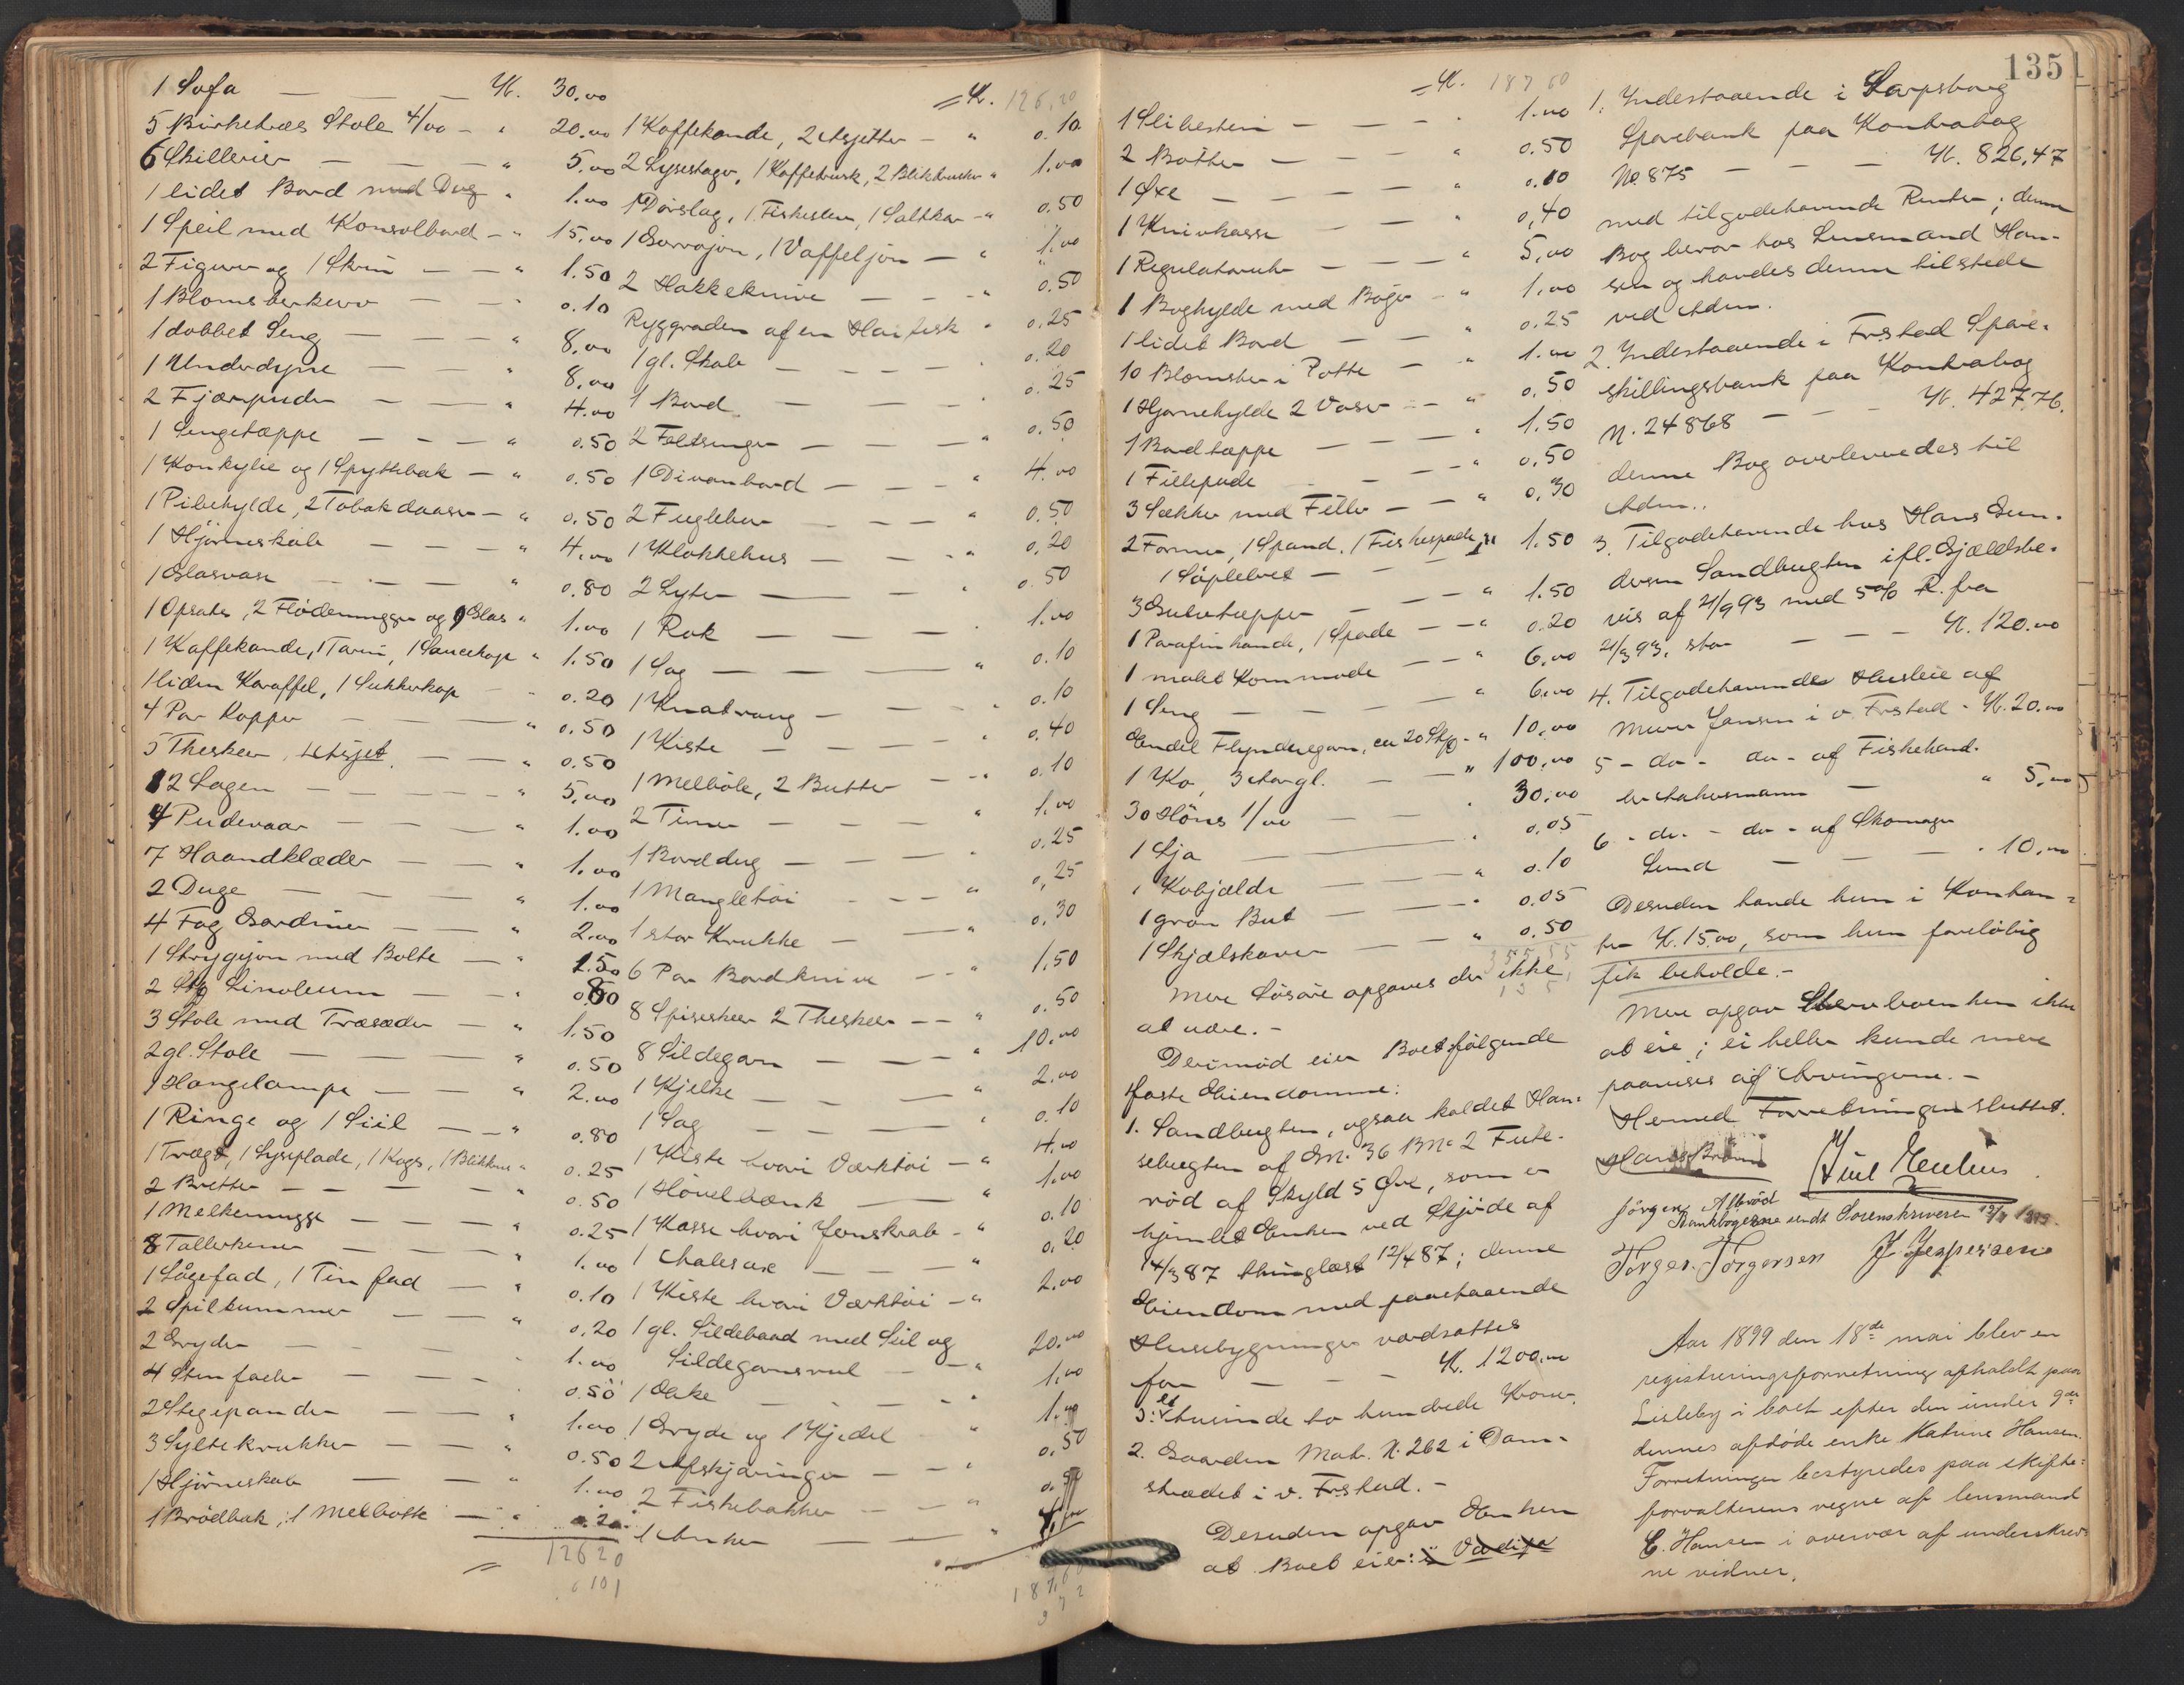 1 Sofa — — — Kr. 30.00
5 Birketræs Stole 4/00 - " 20.00
6 Skillerier — — — " 5.00
1 lidet Bord med Dug " 1.00
1 Speil med Konsolbord - " 15.00
2 Figurer og 1 Skrin — — " 1.50
1 Blomsterkurv — — " 0.10
1 dobbet Seng — — — " 8.00
1 Underdyne — — — " 8.00
2 Fjærpuder — — — " 4.00
1 Sengetæppe — — — " 0.50
1 Konkylie og 1 Spyttebak — " 0.50
1 Pibehylde, 2 Tobakdaaser - " 0.50
1 Hjörneskab — — — " 4.00
1 Glasvase — — — " 0.80
1 Opsats, 2 Flödemugger og 9 Glas " 1.00
1 Kaffekande, 1 Tarin, 1 Saucekop " 1.50
1 liden Karaffel, 1 Sukkerkop " 0.20
4 Par Kopper — — " 0.50
5 Theskeer, 4 Asjet. — — " 0.50
12 Lagen — — — — " 5.00
4 Pudevaar — — — " 1.00
7 Haandklæder — — " 1.00
2 Duge — — — " 1.00
4 Fag Gardiner — — " 2.00
1 Strygejern med Bolte — " 1.50
2 Stk Linoleum — — " 0.80
3 Stole med Træsæder — " 1.50
2 gl. Stole — — — " 0.50
1 Hængelampe — — — " 2.00
1 Ringe og 1 Siil — — " 0.80
1 Trægt, 1 Lyseplade, 1 Kogs, 1 Blikkum " 0.25
2 Bretter — — — — " 0.50
1 Melkemugge — — — " 0.25
8 Tallerkener — — — " 1.00
1 Lågefad, 1 Tin fad — " 0.10
2 Spilkummer — — " 0.20
2 Gryder — — — " 1.00
4 Sten fade — — — " 0.50
2 Stegepander — — " 1.00
3 Syltekrukker — — " 0.50
1 Hjörneskab — — " 1.00
1 Brödbak, 1 Melbötte — " 0.20
= 126 20
= Kr. 126,20
1 Kaffekande, 2 Asjetter — " 0.10
2 Lysestager, 1 Kaffebrusk, 2 Blikbrusker " 1.00
1 Dörslag, 1 Fiskesten, 1 Saltkar - " 0.50
1 Gorrojern, 1 Vaffeljern — " 1.00
2 Hakkeknive — — " 0.50
Ryggraden af en Haifisk " 0.25
1 gl. Skab — — — " 0.20
1 Bord — — — " 0.25
2 Feltsenger — — — " 0.50
1 Divanbord — — — " 4.00
2 Fuglebur — — — " 0.50
1 Klokkehus — — — " 0.20
2 Lyter — — — " 0.50
1 Rok — — — " 1.00
1 Sag — — — " 0.10
1 Knatvang — — — " 0.10
1 Kiste — — — " 0.40
1 Melböle, 2 Butter — — " 0.10
2 Tiner — — — " 1.00
1 Borddug — — — " 0.25
1 Mangletöi — — — " 0.25
1 stor Krukke — — " 0.30
6 Par Bordknive — — " 1.50
8 Spiseskeer 2 Theskeer — — " 0.50
8 Sildegarn — — — " 10.00
1 Kjelke — — — " 2.00
1 Sag — — — " 0.10
1 Kiste hvori Værktöi — " 4.00
1 Hövelbænk — — " 1.00
1 Kasse hvori Jernskrab - " 0.10
1 Malerax — — — " 0.20
1 Kiste hvori Værktöi — " 2.00
1 gl. Sildebaad med Seil og
Sildegarnsrul — — " 20.00
1 Ege — — — " 1.00
1 Gryde og 1 Kjedel " 1.00
2 Afskjæringer — — " 0.50
2 Fiskebakker — — " 0.50
1 Anker — — "
= Kr. 187 60
1 Slibesten — — — " 1.00
2 Bötter — — — " 0.50
1 Øxe — — — " 0.10
1 Knivkasse — — " 0,40
1 Regulatoruhr — — " 5,00
1 Boghylde med Böger — " 1.00
1 lidet Bord — — " 0.25
10 Blomster i Potte — " 1.00
1 Hjørnehylde 2 Vaser — " 0.50
1 Bordtæppe — — — " 1.50
1 Fillepude — — " 0.50
3 Sækker med Filler — — " 0,30
2 Former, 1 Spand. 1 Fiskespade,
1 Söplebret — — " 1.50
3 Gulvtæpper — — " 1.50
1 Parafinkande, 1 Spade — — " 0.20
1 malet Kommode — — " 6.00
1 Seng — — — " 6.00
Endel Flyndregarn, ca 20 Stk - " 10,00
1 Ko, 3 Aar gl. — — " 100,00
30 Höns 1/00 — — " 30.00
1 Lja — — — " 0.05
1 Kobjælde — — " 0.10
1 grön But — — " 0.05
1 Skjælskaver — — " 0.50
355,55
Mere Lösöre opgaves der ikke
at være. -
Derimod eier Boet følgende
faste Eiendomme:
1. Sandbugten, ogsaa kaldet Han-
sebugten af G.No. 36 B.No 2 Fute-
röd af Skyld 5 Øre, som er
hjemlet Enken ved Skjöde af
14/3 87 thinglæst 12/4 87; denne
Eiendom med paastaaende
Husebygninger værdsattes
for — — — Kr. 1200.00
3: et tusinde to hundrede Kroner.
2. Gaarden Mat. N. 262 i Dam-
strædet i v. Fr.stad. -
Desuden opgav Enken
at Boet eier:
135
1. Indestaaende i Sarpsborg
Sparebank paa Kontrabog
No. 875 — — — Kr. 826,47
med tilgodehavende Renter; denne
Bog beror hos Lensmand Han-
sen og havdes denne tilstede
ved Adm.
2. Indestaaende i Fr.stad Spare-
skillingsbank paa Kontrabog
N. 24868 — — — Kr. 427,76.
denne Bog overleveredes til
Adm..
3. Tilgodehavende hos Hans Gun-
dersen Sandbugten ifl. Gjældsbe-
vis af 21/9 93 med 5% R. fra
21/3 93, stor — — — Kr. 120.00
4. Tilgodehavende Husleie af
Murer Jansen i v. Fr.stad - Kr. 20.00
5 - do - do - af Fiskehand-
ler Aakermann — " 5,00
6 - do - do - af Skomager
Lund — — — " 10,00
Desuden havde hun i Kontan-
ter Kr. 15,00, som hun foreløbig
fik beholde. -
Mere opgav Sterboenken ikke
at eie; ei heller kunde mere
paavises af Arvingerne. -
Hermed Forretningen sluttet.
Hans Brömm Juel Meulius
Jörgen Alleröd
Bankbögerne sendt Sorenskriveren 12/7 1899.
Torger Torgersen J. Jespersen
Aar 1899 den 18de mai blev en
registreringsforretning afholdt paa
Lisleby i boet efter den under 9de
dennes afdöde enke Katrine Hansen.
Forretningen bestyredes paa skifte-
forvalterens vegne af lensmand
C. Hansen i overvær af underskrev-
ne vidner.